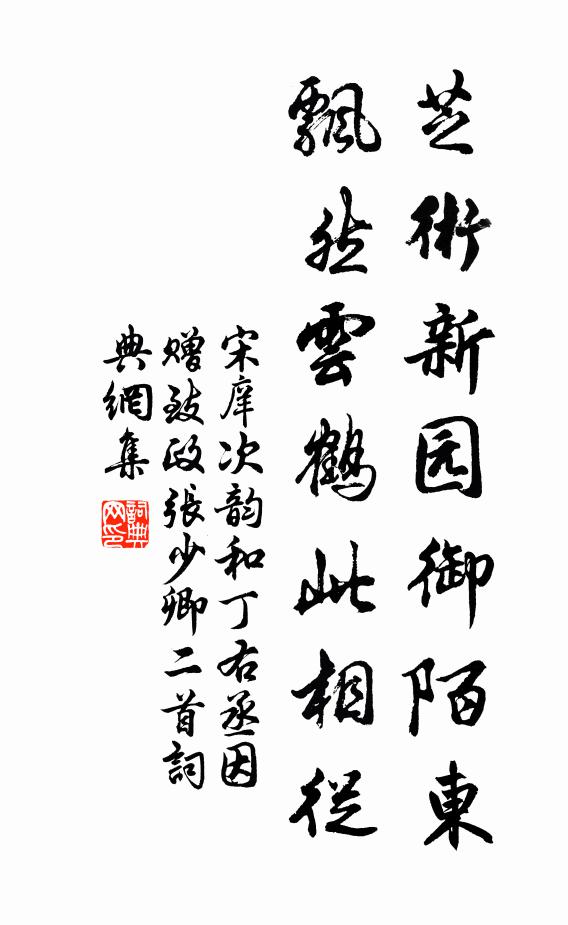 芝術新园御陌東
飄然雲鶴此相從
宋庠次韵和丁右丞因
赠致政張少卿二首詞
典網集
詞典网印